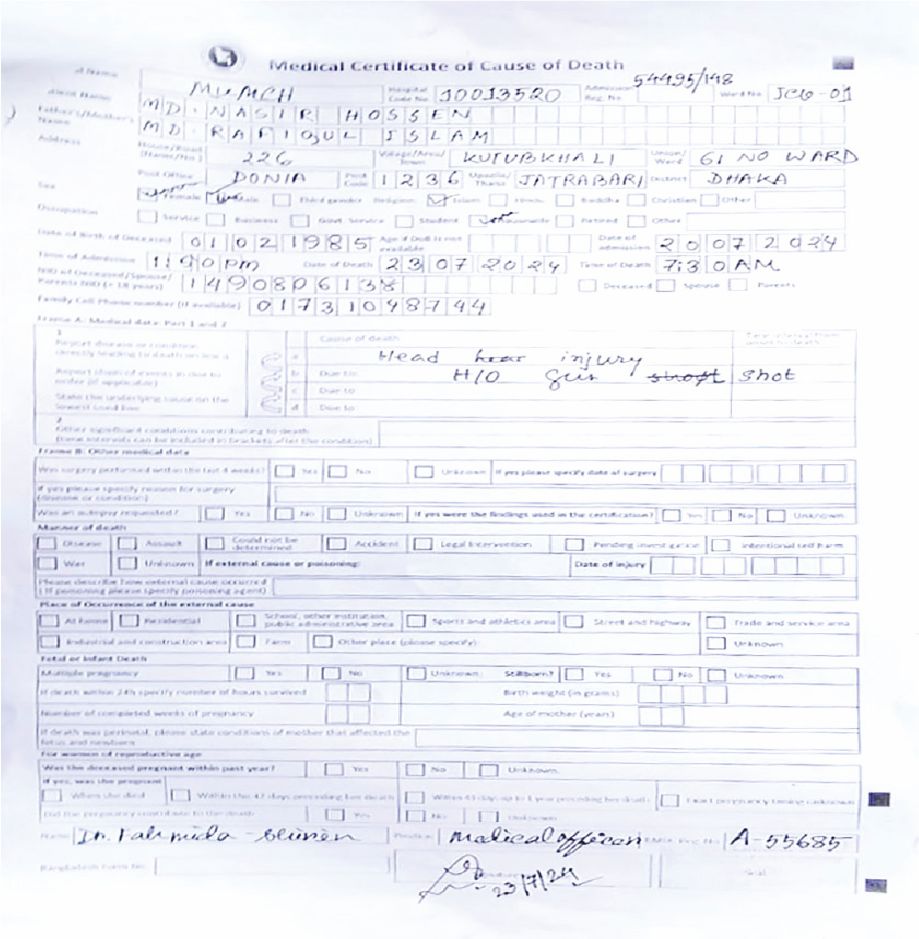 Medical Certificate of Cause of Death
MUMCH Hospital Code No 10013520 Admission Reg. No 54495/148 Ward No JCU-01
MD. NASIR HOSSEN
Father's/Mother's Name MD. RAFIQUL ISLAM
Address House/Road (Name/No.) 226 Village/Area/Town KUTUBKHALI Union/Ward 61 NO WARD
Post Office DONIA Post Code 1236 Upazila/Thana JATRABARI District DHAKA
Sex Female Male Third gender Religion: Islam Hindu Buddha Christian Other
Occupation Service Business Govt Service Student Retired Other
Date of Birth of Deceased 01021985 Age if DoB is not available Date of admission 20072024
Time of Admission 1:90 PM Date of Death 23072024 Time of Death 7:30 AM
NID of Deceased/Spouse/Parents NID (< 18 years) 1490806138 Deceased Spouse Parents
Family Cell Phone number (if available) 01731098744
Frame A: Medical data: Part 1 and 2
1 Cause of death
Report disease or condition directly leading to death on line a a Head injury
Report chain of events in due to order (if applicable) b Due to: H/O gun shot
State the underlying cause on the lowest used line c Due to
d Due to
2
Other significant conditions contributing to death
(time intervals can be included in brackets after the condition)
Frame B: Other medical data
Was surgery performed within the last 4 weeks? Yes No Unknown If yes please specify date of surgery
If yes please specify reason for surgery (disease or condition)
Was an autopsy requested? Yes No Unknown If yes were the findings used in the certification? Yes No Unknown
Manner of death
Disease Assault Could not be determined Accident Legal Intervention Pending investigation Intentional self harm
War Unknown If external cause or poisoning: Date of injury
Please describe how external cause occurred
(If poisoning please specify poisoning agent)
Place of Occurrence of the external cause
At home Residential School, other institution, public administrative area Sports and athletics area Street and highway Trade and service area
Industrial and construction area Farm Other place (please specify) Unknown
Fetal or Infant Death
Multiple pregnancy Yes No Unknown: Stillborn? Yes No Unknown
If death within 24h specify number of hours survived Birth weight (in grams)
Number of completed weeks of pregnancy Age of mother (years)
If death was perinatal, please state conditions of mother that affected the fetus and newborn
For women of reproductive age
Was the deceased pregnant within past year? Yes No Unknown
If yes, was she pregnant
When she died Within the 42 days preceding her death Within 43 days up to 1 year preceding her death Exact pregnancy timing unknown
Did the pregnancy contribute to the death Yes No Unknown
Name Dr. Fahmida Medical officer A-55685
Bangladesh Form No. 23/7/24 Seal